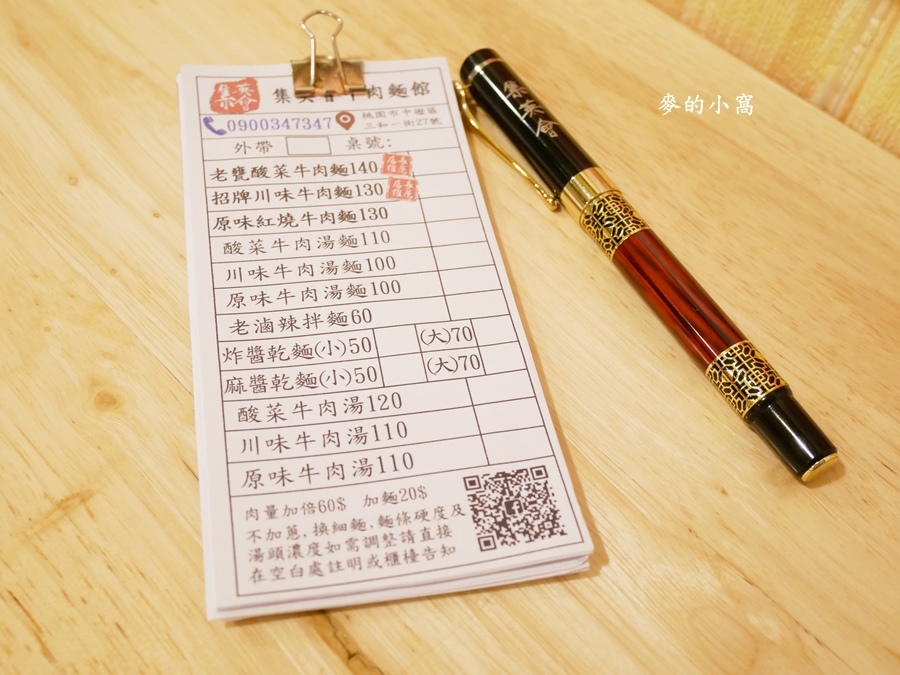 集英會
集英會牛肉麵館
0900347347
桃園市中壢區
三和一街27號
外帶
桌號:
老甕酸菜牛肉麵140
招牌川味牛肉麵130
原味紅燒牛肉麵130
酸菜牛肉湯麵110
川味牛肉湯麵100
原味牛肉湯麵100
老滷辣拌麵60
炸醬乾麵(小)50 (大)70
麻醬乾麵(小)50 (大)70
酸菜牛肉湯120
川味牛肉湯110
原味牛肉湯110
肉量加倍60$ 加麵20$
不加蔥,換細麵,麵條硬度及
湯頭濃度如需調整請直接
在空白處註明或櫃檯告知
集英會
麥的小窩